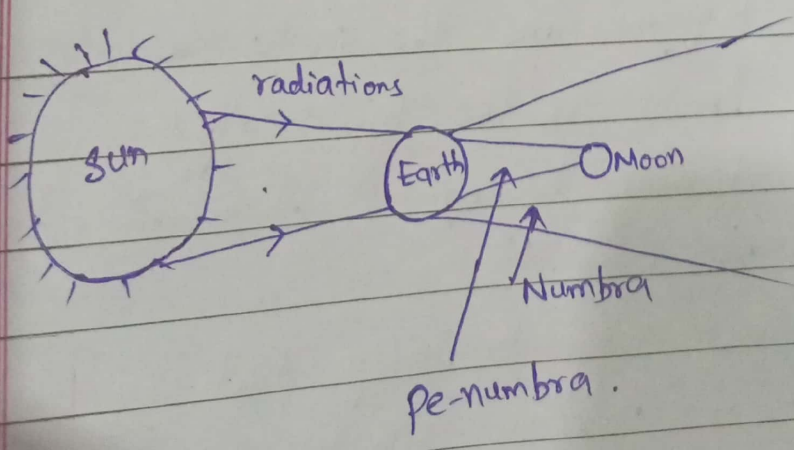 radiations
Sun
Earth
Moon
Numbra
Pe-numbra .